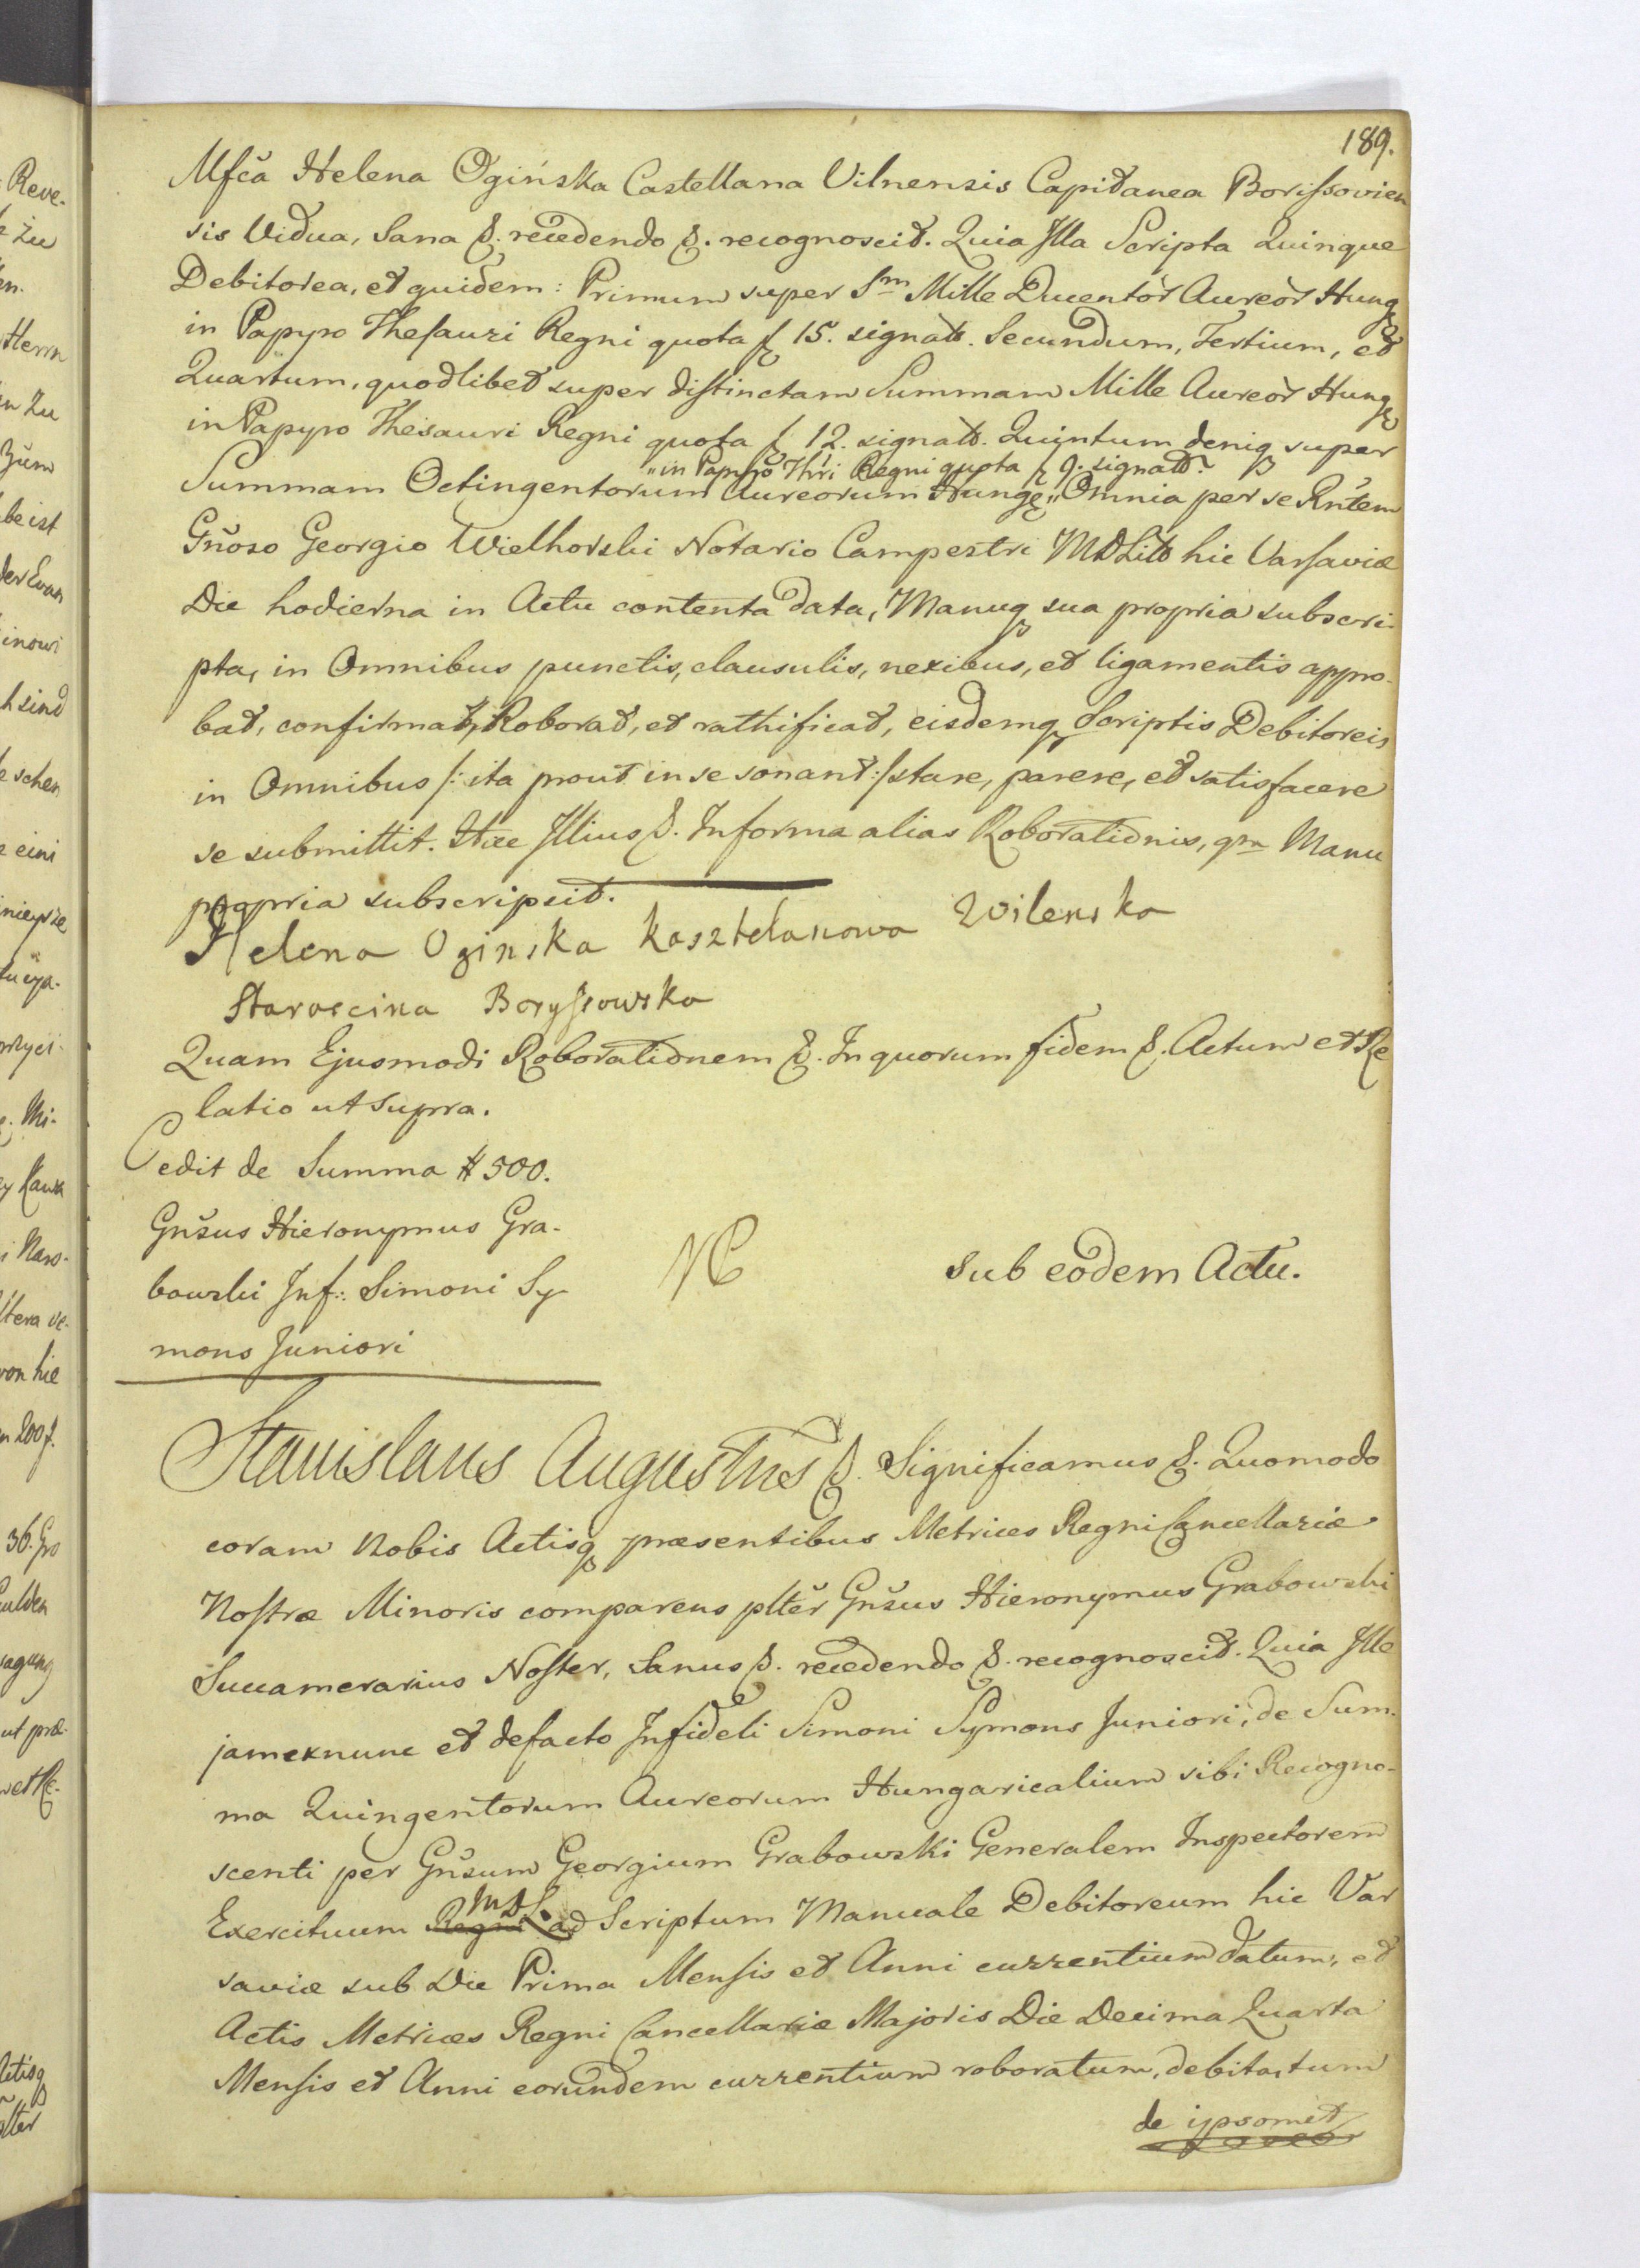 189.
Mfča Helena Ogińska Castellana Vilnensis Capitanea Borissovien
sis Vidua, Sana &. recedendo &. recognoscit. Quia Illa Scripta Quinque
Debitorea, et quidem: Primum super Sm̅ Mille Ducentor̃ Aureor̃ Hungę
in Papyro Thesauri Regni quota f 15. signat̃o. Secundum, Tertium, et
Quartum, quodlibet super distinctam Summam Mille Aureor̃ Hungę
in Papyro Thesauri Regni quota f 12. signat̃o. Quintum deniq super
"in Papyro Thri Regni quota f 9. signat̃o"
Summam Octingentorum Aureorum Hungę" Omnia per se Rñtem
Gñoso Georgio Wielhorski Notario Campestri MDLit̃o hic Varsaviæ
Die hodierna in Actu contenta data, Manuq sua propria subscri-
pta, in Omnibus punctis, clausulis, nexibus, et ligamentis appro-
bat, confirmat, Roborat, et rathificat, eisdemq Scriptis Debitoreis
in Omnibus /: ita prout in se sonant :/ stare, parere, et satisfacere
se submittit. Itæ Illius &. In forma alias Roborationis, qm̅ Manu
propria subscripsit.
Helena Oginska Kasztelanowa Wilenska
Staroscina Boryssowska
Quam Ejusmodi Roborationem &. In quorum fidem &. Actum et Re
latio ut supra.
Cedit de Summa # 500.
Gñsus Hieronymus Gra-
bowski Inf: Simoni Sy-
mons Juniori
Sub eodem Actu.
Stanislaus Augustus &. Significamus &. Quomodo
coram Nobis Actisq præsentibus Metrices Regni Cancellariæ
Nostræ Minoris comparens plter̃ Gñsus Hieronymus Grabowski
Succamerarius Noster, Sanus &. recedendo &. recognoscit. Quia Ille
jam ex nunc et defacto Infideli Simoni Symons Juniori, de Sum-
ma Quingentorum Aureorum Hungaricalium sibi Recogno-
scenti per Gñsum Georgium Grabowski Generalem Inspectorem
MDL.
Exercituum Regni ad Scriptum Manuale Debitoreum hic Var
saviæ sub Die Prima Mensis et Anni currentium datum, et
Actis Metrices Regni Cancellariæ Majoris Die Decima Quarta
Mensis et Anni eorundem currentium roboratum, debita, tum
de ipsomet